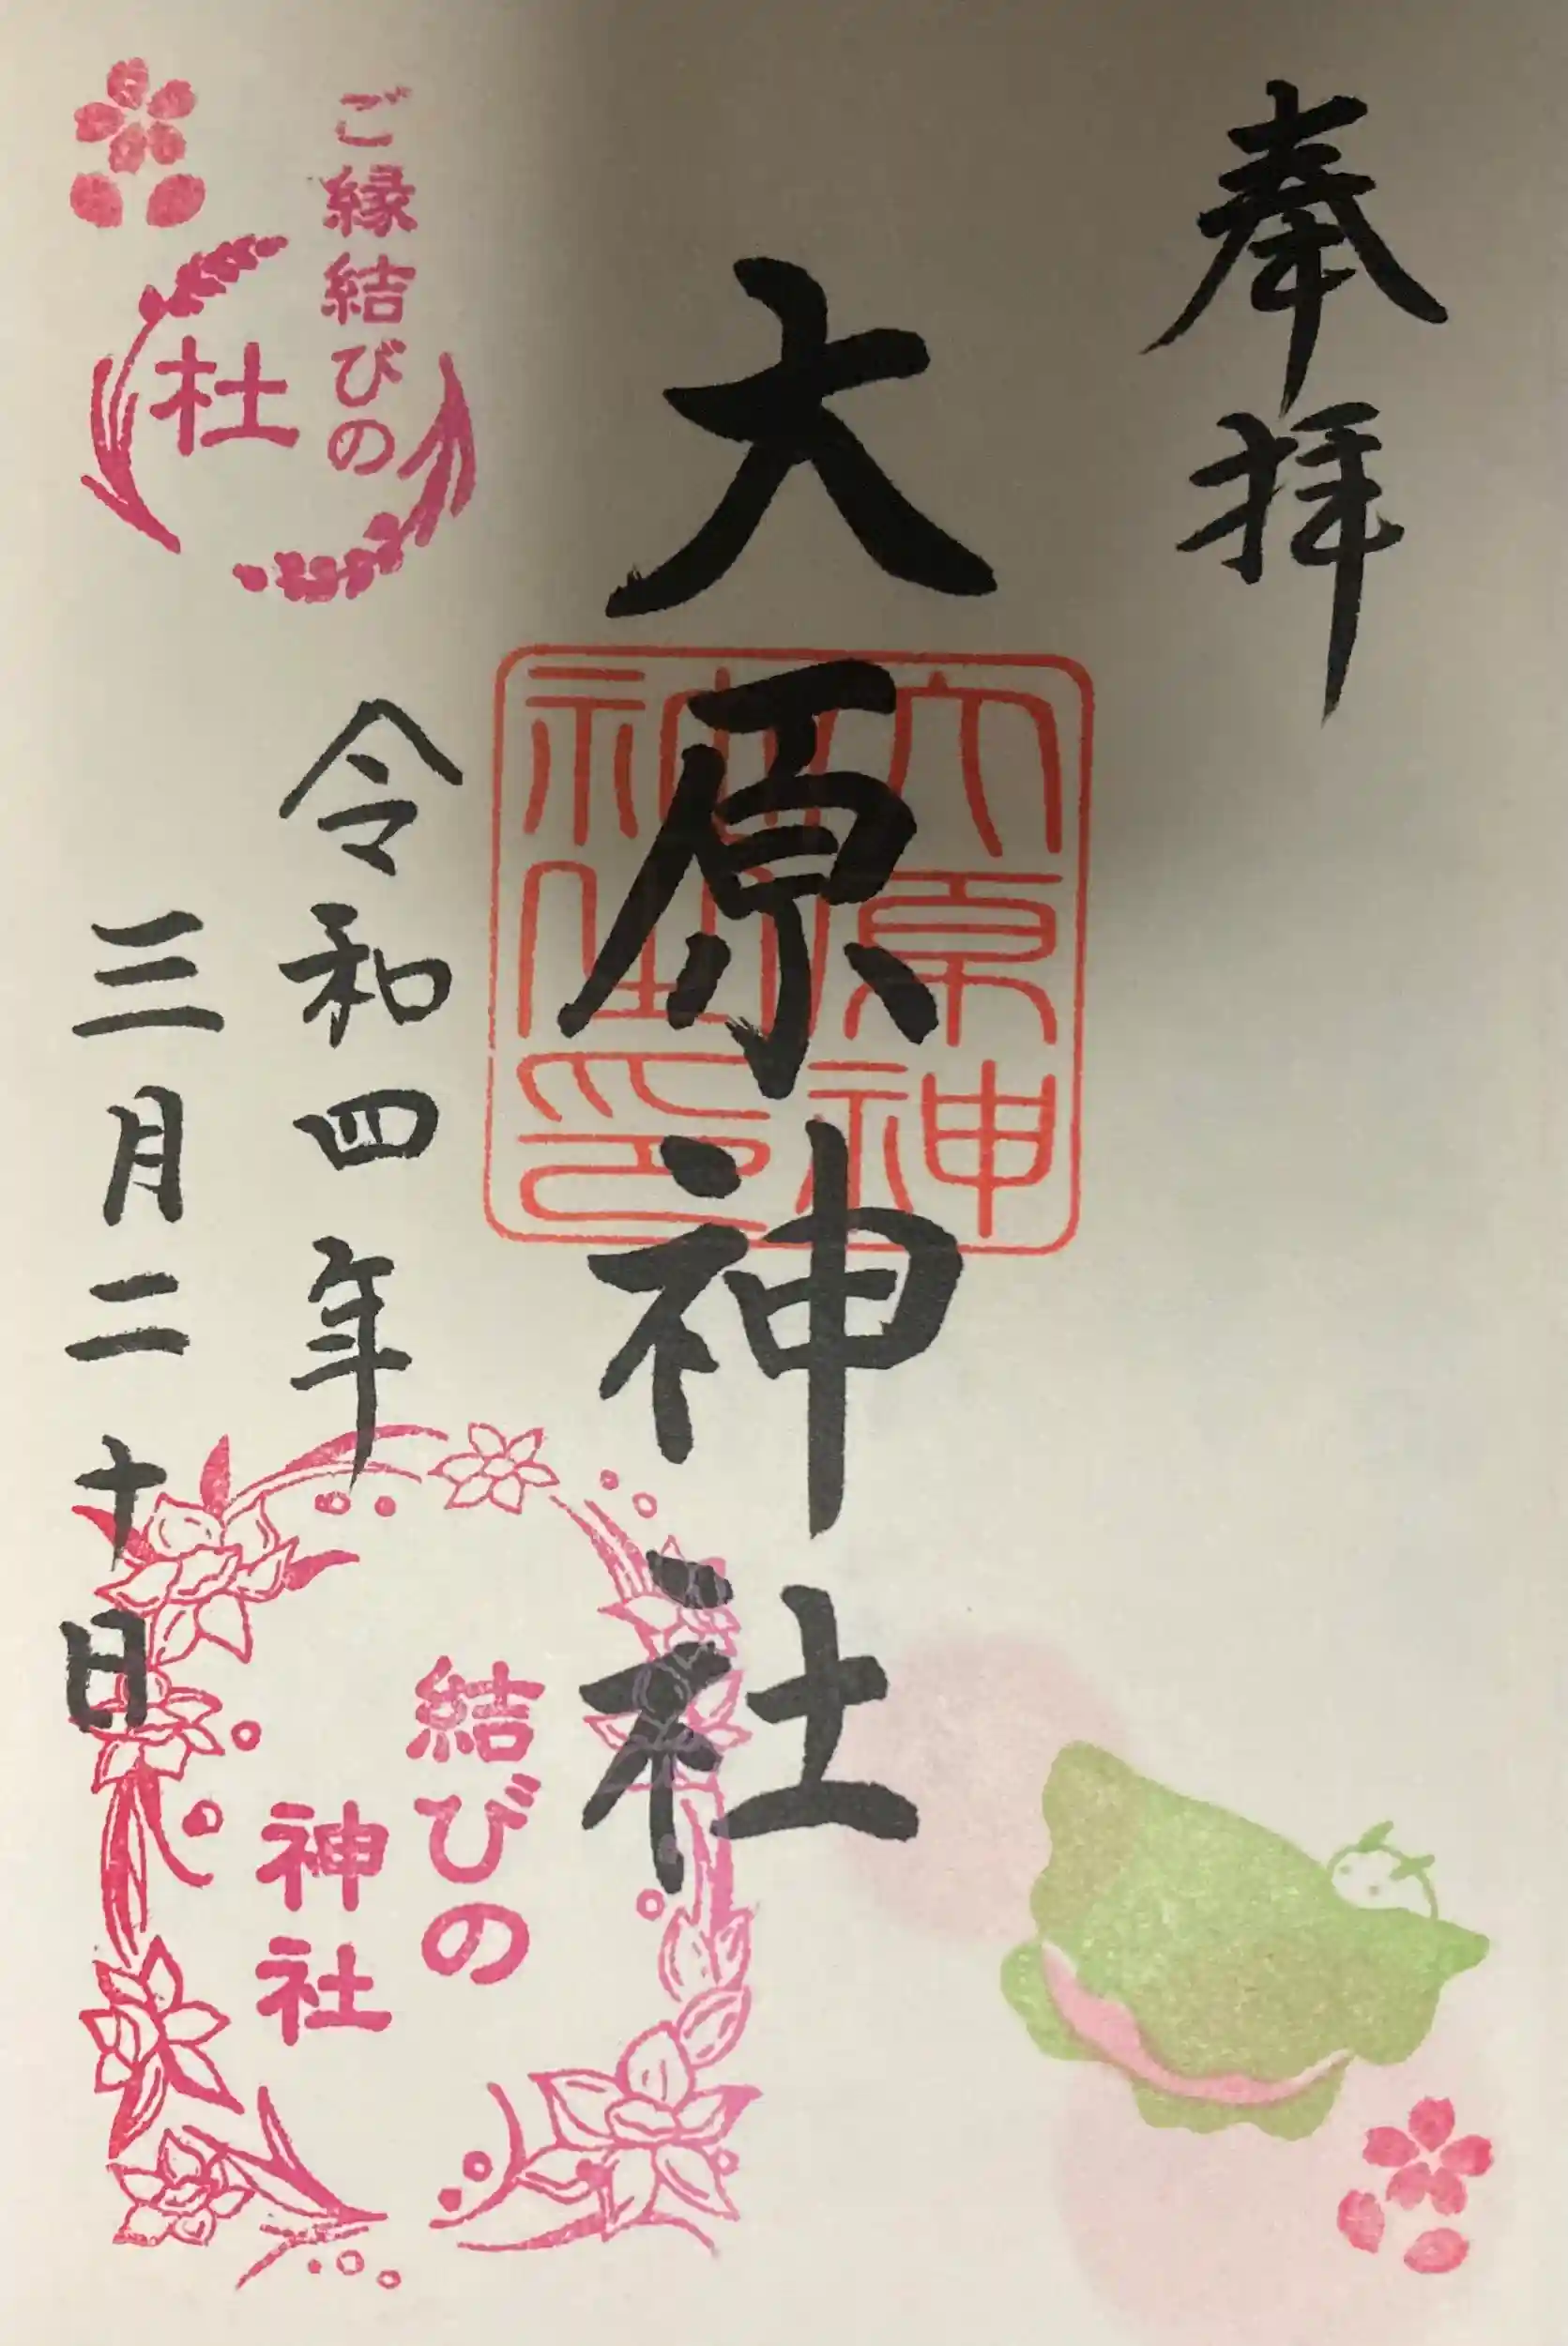 奉拝
大原神社
大原神
社印
令和四年
三月二十日
ご縁結びの
杜
結びの
神社